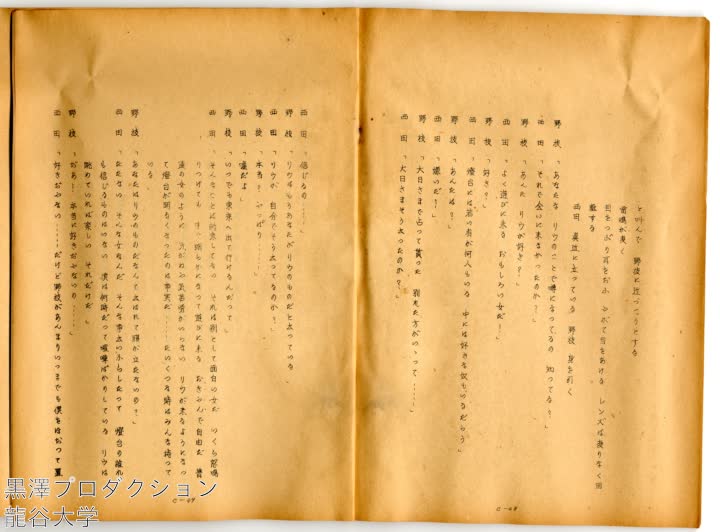 と叫んで　野枝に近づこうとする
雷鳴が轟く
目をつぶり耳をおおふ　やがて目をあける　レンズは激りなく回
転する
西田　真直に立っている　野枝　身を引く
野枝「あなたな　リウのことで噂になってるの　知ってる？」
西田「それで会いに来なかったのか？」
野枝「あんた　リウが好き？」
西田「よく遊びに来る　おもしろい女だ？」
野枝「好き？」
西田「燈台には若い者が何人もいる　中には好きな奴もいるだらう」
野枝「あんたは？」
西田「嫌いだ？」
野枝「大日さまで占って貰った　別れた方がいゝって……」
西田「大日さまそう云ったのか？」
C-48
西田「信じるの……」
野枝「リウはもうあなたがリウのものだと云っている」
西田「リウが　自分でそう云ってるのか？」
野枝「本当？　やっぱり……」
西田「嘘だよ」
野枝「いつでも東京へ出て行けるんだって」
西田「そんなことは約束してない　それは別として面白い女だ　いくら怒鳴
りつけても　すぐ　になって遊びに来る　おきゃんで自由だ　普
通の女のように　気がねや気苦労がいらない　リウが来るようになっ
て燈台が明るくなったのは事実だ……たいくつな時はみんな待って
いる」
野枝「あなたはリウのものだなんて云はれて腹が立たないの？」
西田「たたない　そんな女なんだ　そんな事云いふらしたって　燈台の誰れ
も信じるものはいない　僕は何時だって喧嘩ばかりしている　リウは
眺めていれば楽しい　それだけだ」
野枝「じゃあ！　本当に好きぢゃないの」
西田「好きぢゃない……だけど野枝があんまりいつまでも僕をほおって置
C-49
黒澤プロダクション
龍谷大学